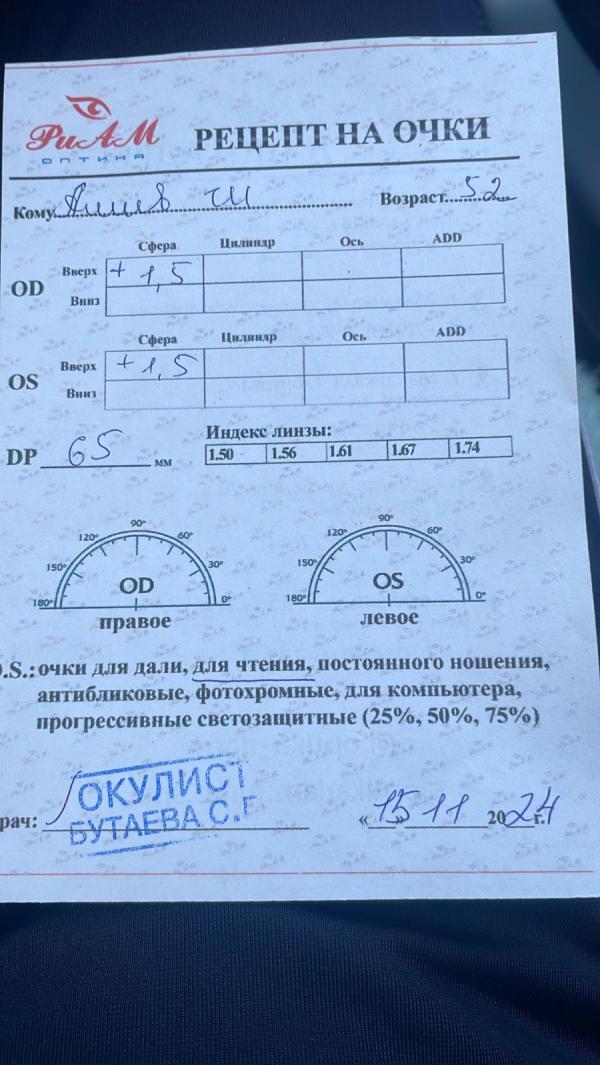 РиАМ
ОПТИКА
РЕЦЕПТ НА ОЧКИ
Кому Ш Возраст 52
Сфера Цилиндр Ось ADD
OD
Вверх + 1,5
Вниз
Сфера Цилиндр Ось ADD
OS
Вверх + 1,5
Вниз
DP 65 мм
Индекс линзы:
1.50 1.56 1.61 1.67 1.74
180° 150° 120° 90° 60° 30° 0°
OD
правое
180° 150° 120° 90° 60° 30° 0°
OS
левое
.S.: очки для дали, для чтения, постоянного ношения,
антибликовые, фотохромные, для компьютера,
прогрессивные светозащитные (25%, 50%, 75%)
рач:
ОКУЛИСТ
БУТАЕВА С.Г
«15» 11 2024 г.